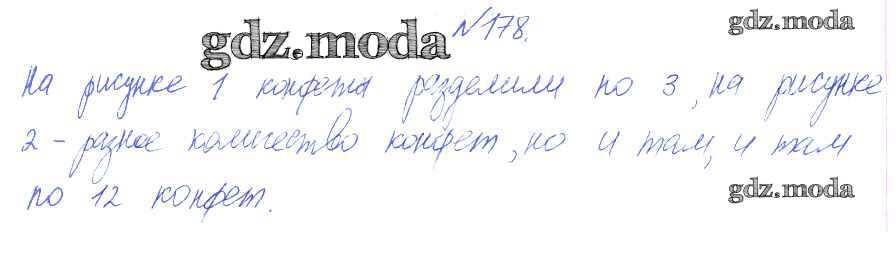 gdz.moda №178. gdz.moda
На рисунке 1 конфета разделили по 3, на рисунке
2 - разное количество конфет, но и там, и там
по 12 конфет. gdz.moda